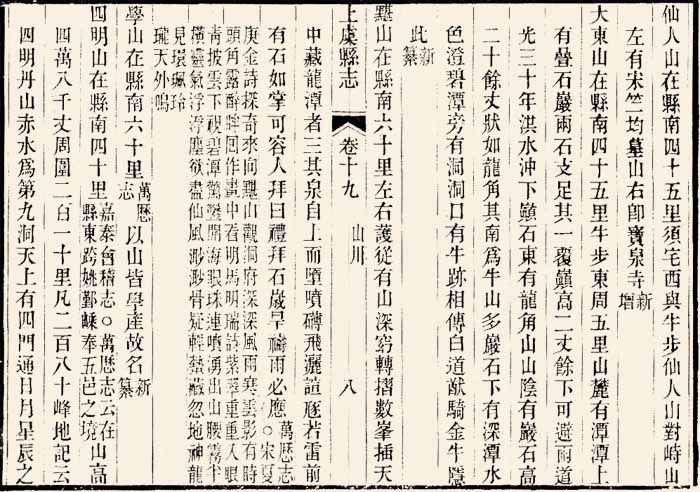 仙人山在縣南四十五里須宅西與牛步仙人山對峙山
左有宋竺均墓山右卽寶泉寺新增
大東山在縣南四十五里牛步東周五里山麓有潭潭上
有疊石巖兩石支足其一覆巔高二丈餘下可避雨道
光三十年洪水沖下巔石東有龍角山山陰有巖石高
二十餘丈狀如龍角其南爲牛山多巖石下有深潭水
色澄碧潭旁有洞洞口有牛跡相傳白道猷騎金牛隱
此新纂
𪒠山在縣南六十里左右護從有山深窈轉摺數峯插天
上虞縣志 卷十九 山川 八
中藏龍潭者三其泉自上而墮噴礴飛灑諠豗若雷前
有石如掌可容人拜曰禮拜石歲旱禱雨必應萬歷志○宋夏
庚金詩探奇來向𪒠山觀洞府深深風雨寒雲影有時
頭角露醉眸回作畫中看明馬明瑞詩紫翠重重入眼
青披雲下視碧潭驚礬開海眼珠連噴湧出山腰霧半
橫靈氣浮浮塵欲盡仙風渺渺骨疑輕蟄藏忽地神龍
見環珮玲
瓏天外鳴
學山在縣南六十里萬歷志以山皆學產故名新纂
四明山在縣南四十里嘉泰會稽志○萬歷志云在山高
縣東跨姚鄞嵊奉五邑之境
四萬八千丈周圍二百一十里凡二百八十峰地記云
四明丹山赤水爲第九洞天上有四門通日月星辰之